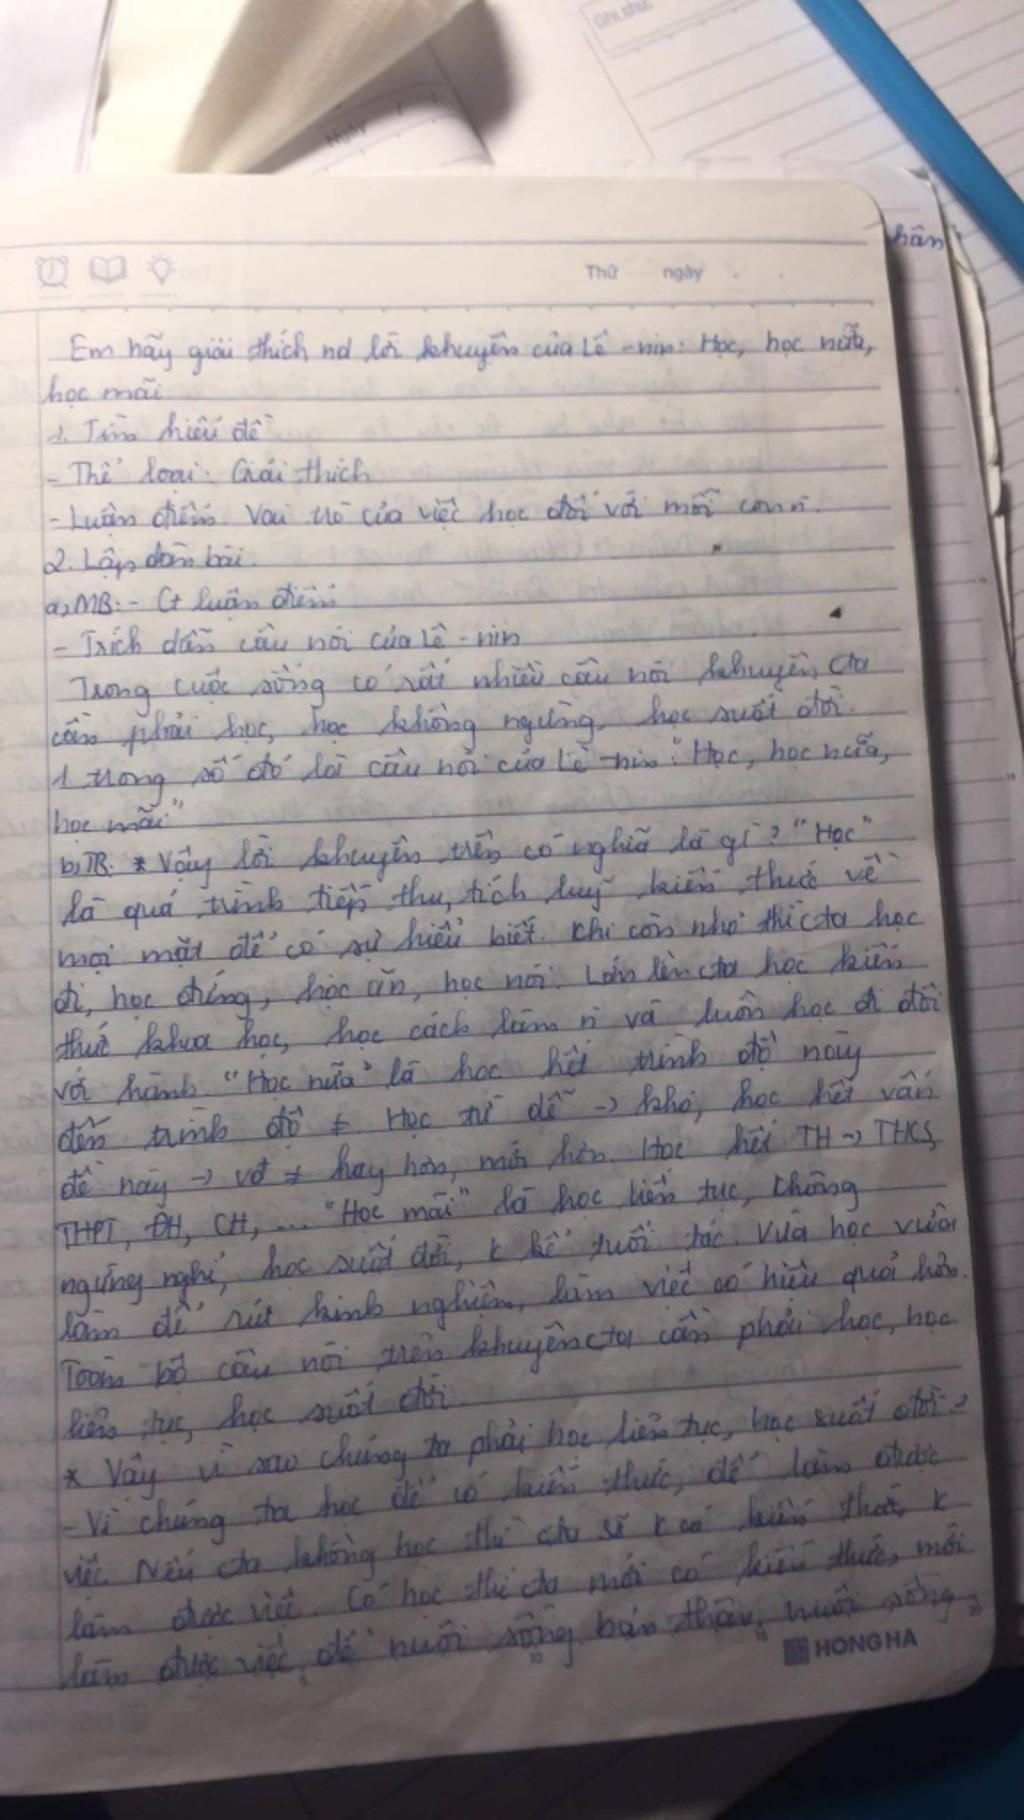 Ghi chú:
Ngày
hân
Thứ ngày
Em hãy giải thích nd lời khuyên của Lê-nin: Học, học nữa,
học mãi
1. Tìm hiểu đề
- Thể loại: Giải thích
- Luận điểm: Vai trò của việc học đối với mỗi con n.
2. Lập dàn bài.
a, MB: - Gt luận điểm
- Trích dẫn câu nói của Lê-nin
Trong cuộc sống có rất nhiều câu nói khuyên cta
cần phải học, học không ngừng, học suốt đời.
1 trong số đó là câu nói của Lê-nin: "Học, học nữa,
học mãi"
b, TB: * Vậy lời khuyên trên có nghĩa là gì? "Học"
là quá trình tiếp thu, tích luỹ kiến thức về
mọi mặt để có sự hiểu biết. Khi còn nhỏ thì cta học
đi, học đứng, học ăn, học nói. Lớn lên cta học kiến
thức khoa học, học cách làm n và luôn học đi đôi
với hành. "Học nữa" là học hết trình độ này
đến trình độ ≠. Học từ dễ -> khó, học hết vấn
đề này -> vđ ≠ hay hơn, mới hơn. Học hết TH -> THCS,
THPT, ĐH, CH, ... "Học mãi" là học liên tục, không
ngừng nghỉ, học suốt đời, k kể tuổi tác. Vừa học vừa
làm để rút kinh nghiệm, làm việc có hiệu quả hơn.
Toàn bộ câu nói trên khuyên cta cần phải học, học
liên tục, học suốt đời.
* Vậy vì sao chúng ta phải học liên tục, học suốt đời?
- Vì chúng ta học để có kiến thức, để làm được
việc. Nếu cta không học thì cta sẽ k có kiến thức, k
làm được việc. Có học thì cta mới có kiến thức, mới
làm được việc, để nuôi sống bản thân, nuôi sống
HONG HA